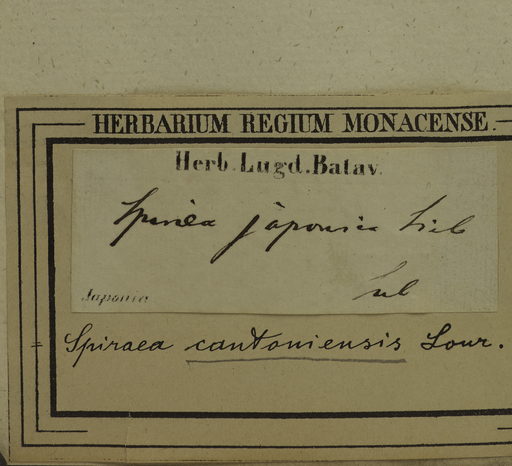 HERBARIUM REGIUM MONACENSE.
Herb. Lugd. Batav.
Spiraea japonica Sieb
Japonia
= Spiraea cantoniensis Lour.